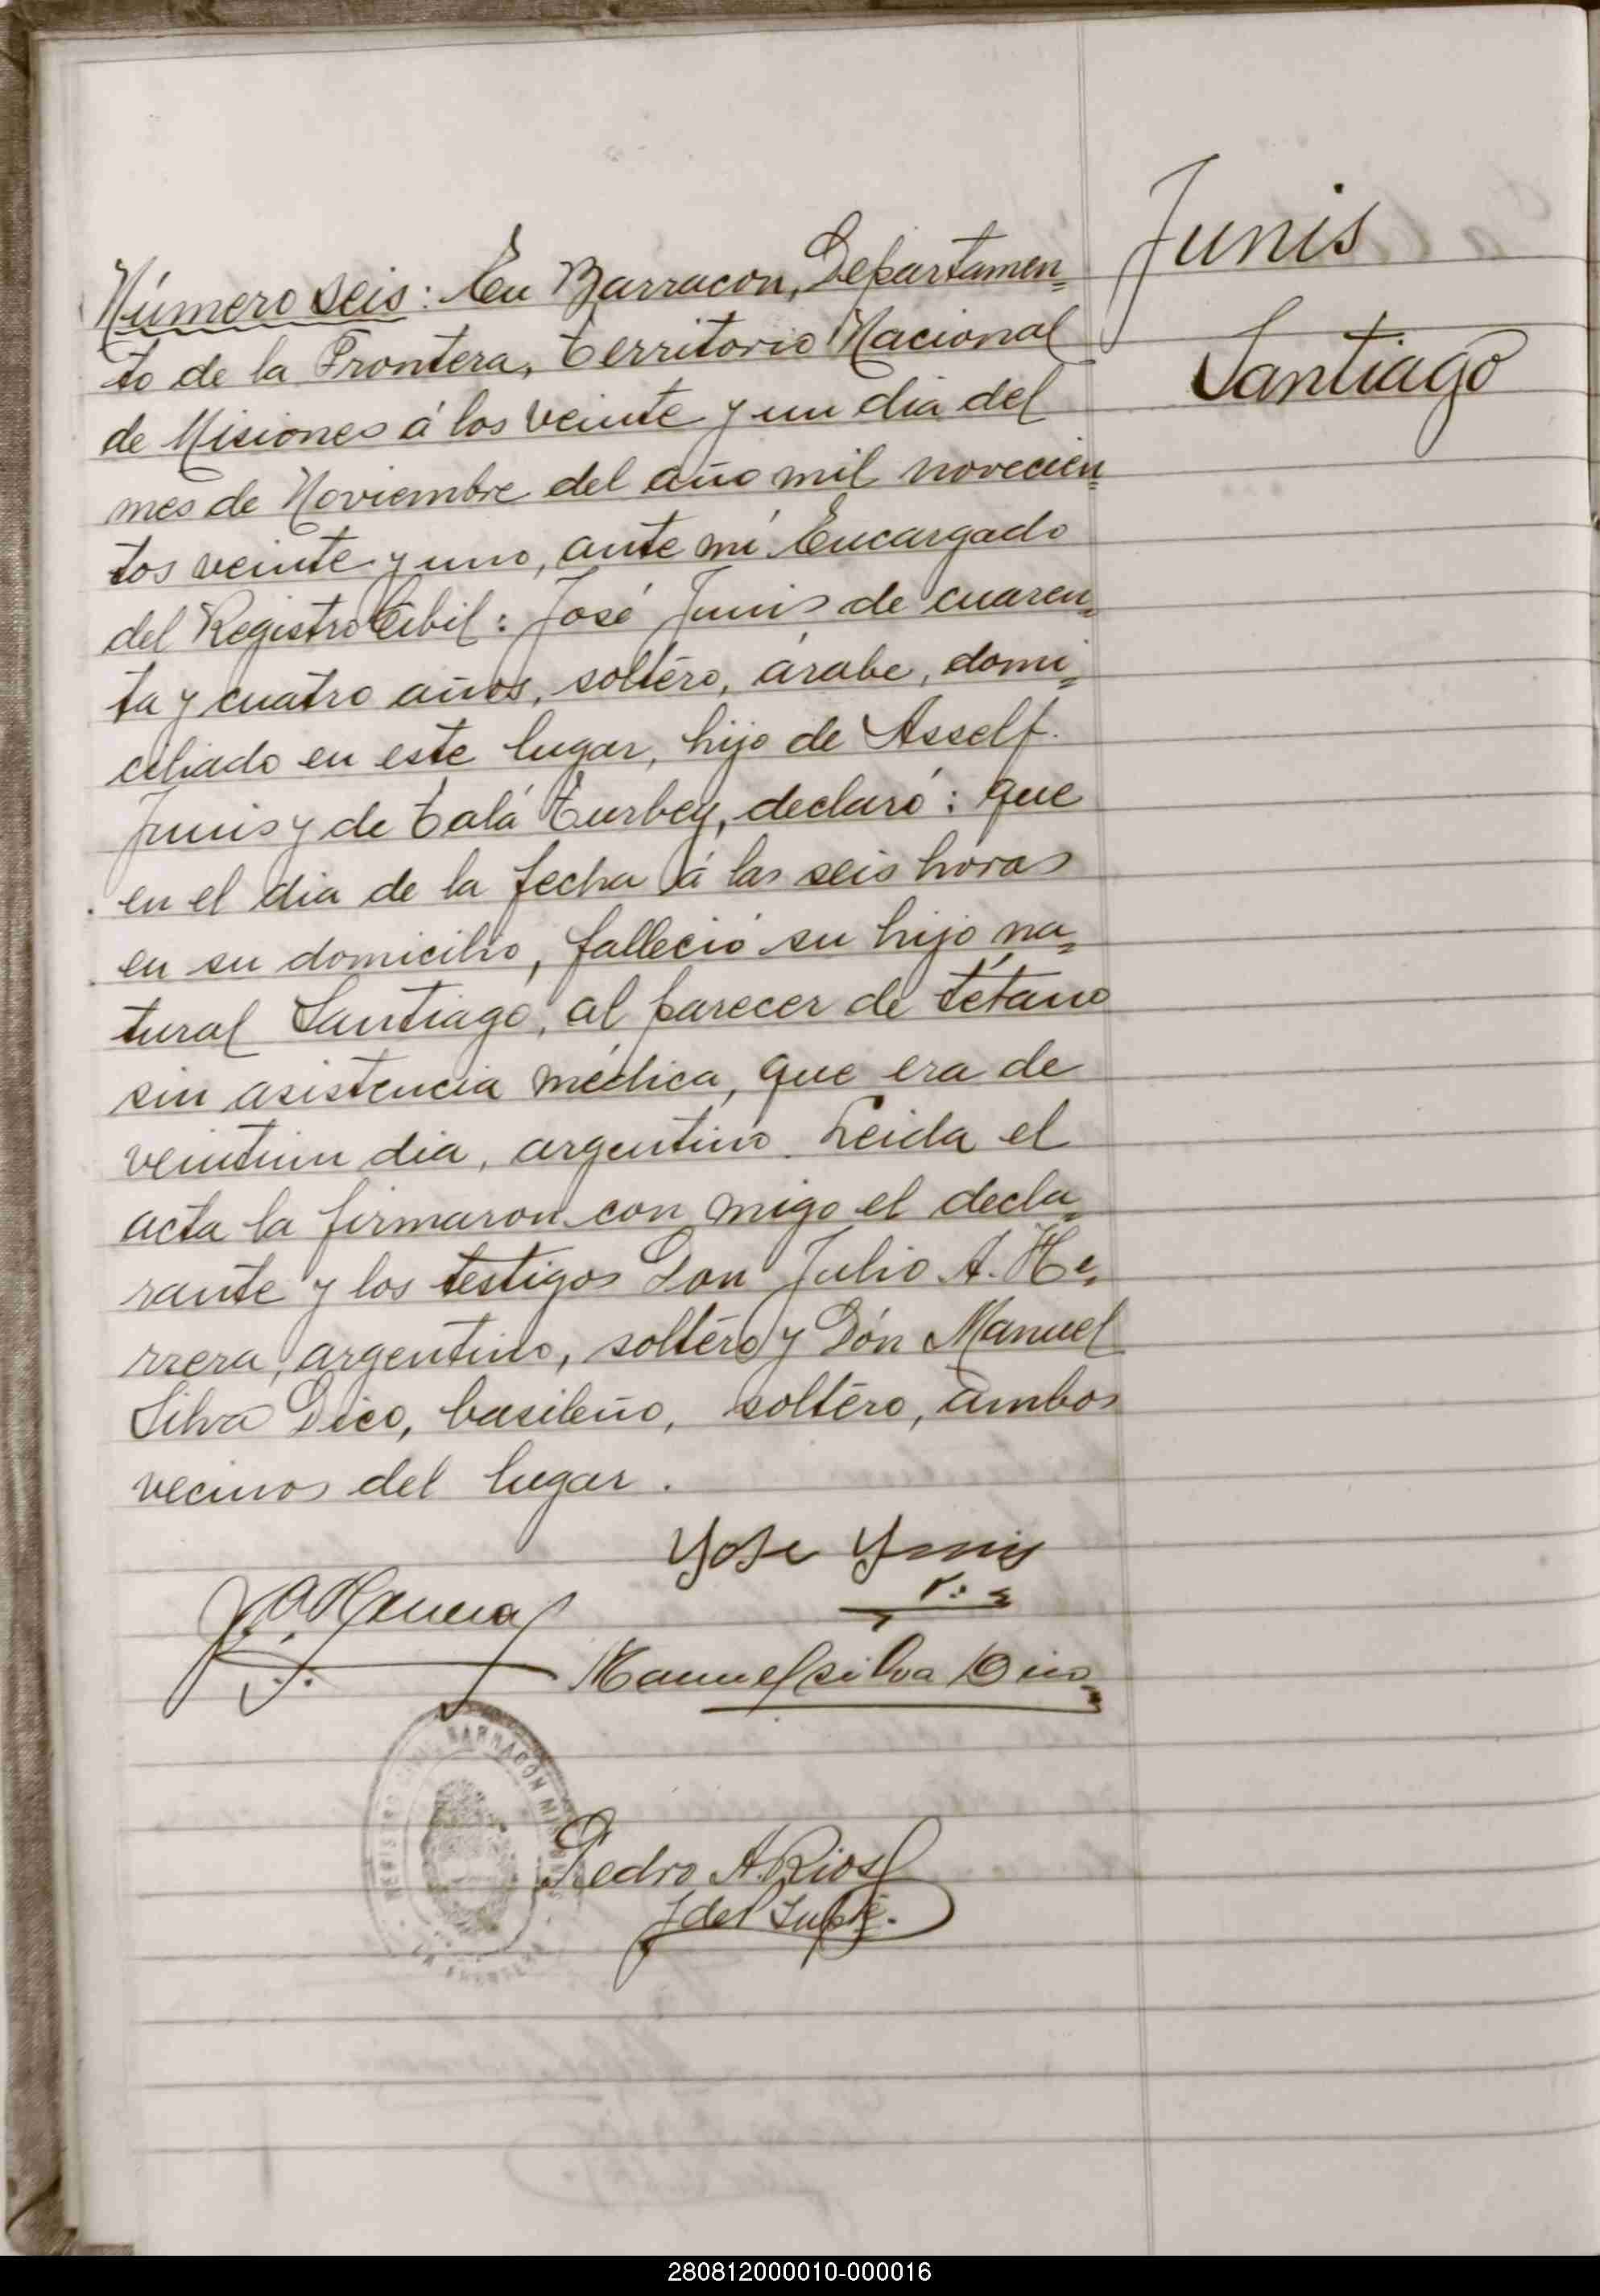 Junis
Santiago
Número seis: En Barracon, Departamen=
to de la Frontera, Territorio Nacional
de Misiones á los veinte y un dia del
mes de Noviembre del año mil novecien=
tos veinte y uno, ante mi Encargado
del Registro Cibil: José Junis de cuaren=
ta y cuatro años, soltéro, árabe, domi=
ciliado en este lugar, hijo de Asself.
Junis y de Talá Turbey, declaró: que
en el dia de la fecha á las seis horas
en su domicilio, falleció su hijo na=
tural Santiago, al parecer de tétano
sin asistencia médica, que era de
veintiun dia, argentino. Leida el
acta la firmaron con migo el decla=
rante y los testigos Don Julio A. He=
rrera, argentino, soltéro y Dón Manuel
Silva Dico, basileño, soltéro, ambos
vecinos del lugar.
Yose Yunis
J A Herrera
Manuel silva Dico
REGISTRO CIVIL BARRACÓN MISIONES
LA FRONTERA
Pedro A. Rios
J del Suple.
280812000010-000016